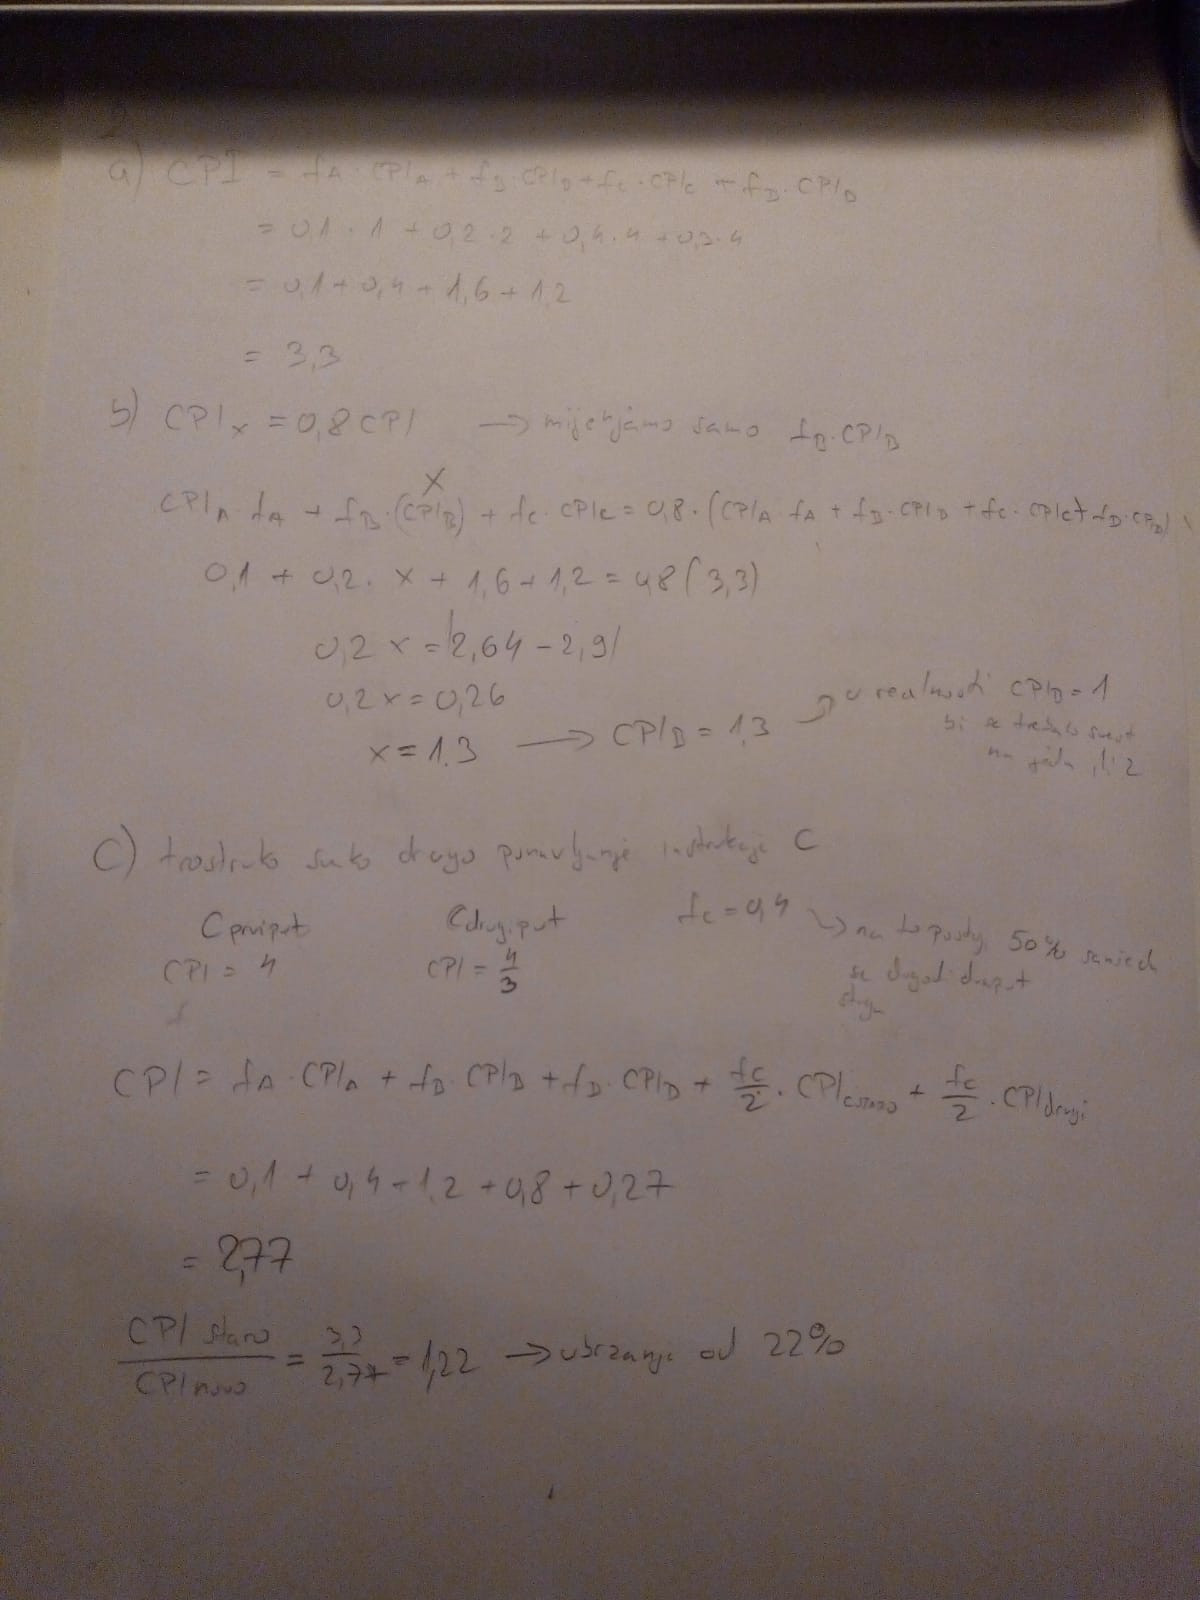 a) CPI = fA · CPIA + fB · CPIB + fC · CPIC + fD · CPID
= 0,1 · 1 + 0,2 · 2 + 0,4 · 4 + 0,3 · 4
= 0,1 + 0,4 + 1,6 + 1,2
= 3,3
b) CPIx = 0,8 CPI → mijenjamo samo fB · CPIB
x
CPIA · fA + fB · (CPIB) + fC · CPIC = 0,8 · (CPIA · fA + fB · CPIB + fC · CPIC + fD · CPID)
0,1 + 0,2 · x + 1,6 + 1,2 = 0,8 (3,3)
0,2 x = |2,64 - 2,9|
0,2 x = 0,26
x = 1.3 → CPIB = 1,3 → u realnosti CPIB = 1
bi se trebalo svest
na jedan ili 2
C) trostruko svako drugo ponavljanje instrukcije C
C prvi put C drugi put fC = 0,4 → na to 50%
CPI = 4 CPI = 4/3 se dogodi
CPI = fA · CPIA + fB · CPIB + fD · CPID + fC/2 · CPIC staro + fC/2 · CPI drugi
= 0,1 + 0,4 + 1,2 + 0,8 + 0,27
= 2,77
CPI staro / CPI novo = 3,3 / 2,77 = 1,22 → ubrzanje od 22%